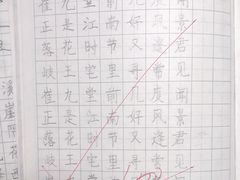 崔九堂前几度闻
正是江南好风景
落花时节又逢君
岐王宅里寻常见
崔九堂前几度闻
正是江南好风景
落花时节又逢君
岐王宅里寻常见